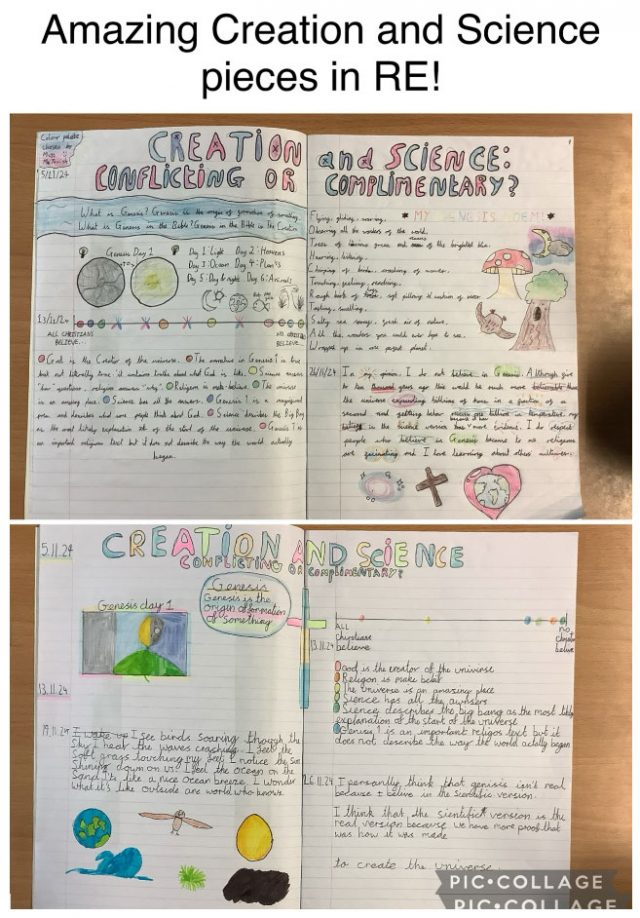 Amazing Creation and Science
pieces in RE!
Colour palette
CREATION
CONFLICTING OR
What is Genesis? Genesis is the origin or formation of something.
What is Genesis in the Bible? Genesis in the Bible is the Creation
Genesis Day 1
Day 1: Light Day 2: Heavens
Day 3: Ocean Day 4: Plants
Day 5: Day & night Day 6: Animals
13/11/24
ALL CHRISTIANS
BELIEVE.
NO
BELIEVE.
God is the Creator of the universe. The narrative in Genesis 1 is true
but not literally true: it contains truths about what God is like. Science answers
"how" questions, religion answers "why". Religion is make-believe. The universe
is an amazing place. Science has all the answers. Genesis 1 is a
poem and describes what some people think about God. Science describes the Big Bang
as the most likely explanation of the start of the universe. Genesis 1 is
an important religious text but it does not describe the way the world actually
began.
and SCIENCE:
COMPLIMENTARY?
MY GENESIS POEM!
Flying, gliding, soaring.
Observing all the wonders of the world.
Trees of green and of the brightest blue.
Hearing, listening.
Chirping of birds, crashing of waves.
Touching, feeling,
Rough bark of trees, soft pillowy
Tasting, smelling.
Salty sea spray, fresh air of nature.
All the wonders you could ever hope to see.
Wrapped up in one perfect planet.
26/11/24 In my opinion, I do not believe in Genesis. Although
years ago this would be much more believable than
the universe expanding billions of times in a fraction of a
second and getting
in the science version has more evidence. I do respect
people who believe in Genesis because to me religions
are fascinating and I love learning about other cultures.
5.11.24
CREATION AND SCIENCE
CONFLICTING OR COMPLIMENTARY?
Genesis
Genesis is the
origin of formation
of something
Genesis day 1
13.11.24
19.11.24 I wake up I see birds soaring through the
sky I hear the waves crashing I feel the
soft grass touching my feet I notice the sun
shining down on us I feel the ocean on the
sand It's like a nice ocean breeze I wonder
what it's like outside are world who knows
ALL
christians
believe
no
believe
13.11.24
God is the creator of the universe
Religon is make belief
The universe is an amazing place
Sience has all the awnsers
Science describes the big bang as the most likly
explanation of the start of the universe
Genesis 1 is an important religos text but it
does not describe the way the world actally began
26.11.24 I personally think that genesis isn't real
because I belive in the scientific version.
I think that the scientific version is the
real version because we have more proof that
was how it was made
to create the universe.
PIC•COLLAGE
PIC•COLLAGE